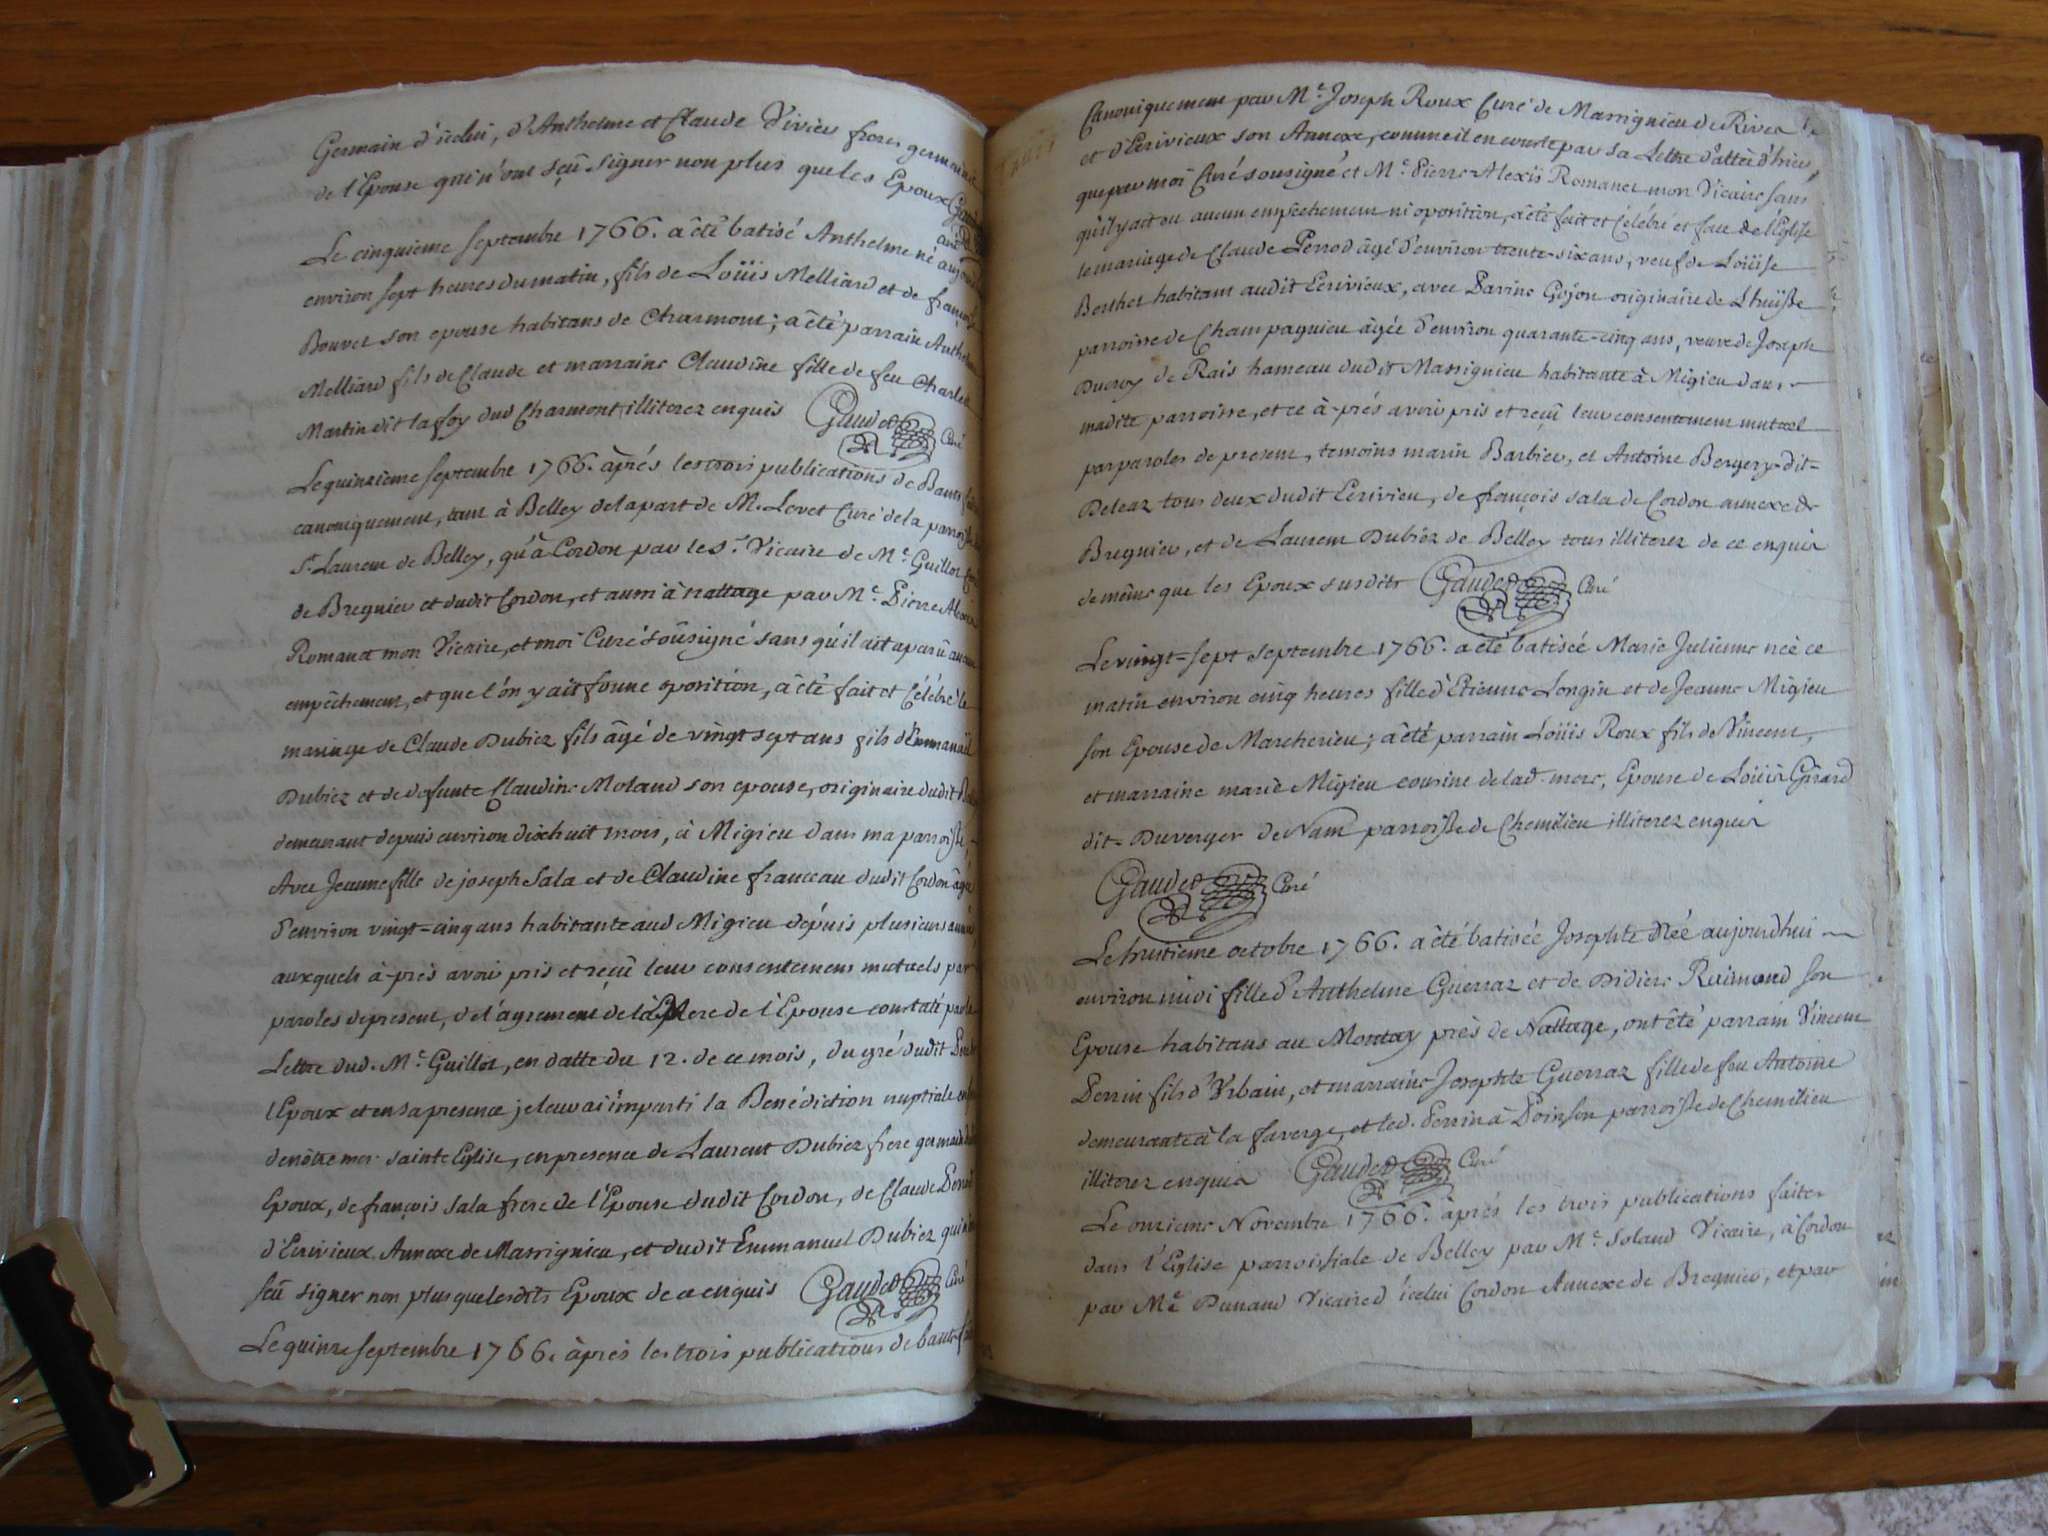 Germain d'icelui, d'Anthelme et Claude Vivier freres germains
de l'Epouse qui n'ont sçû signer non plus que les Epoux
Le cinquieme septembre 1766. a êté batisé Anthelme né
environ sept heures du matin, fils de Loüis Melliand et de
Bouvet son epouse habitans de Charmont; a êté parrain
Melliand fils de Claude et marraine Claudine fille de feu Charles
Martin dit lafoy dud Charmont, illiterez enquis Gaudet Curé
Le quinzieme septembre 1766. àprés les trois publications de Bans
canoniquement, tant à Belley de la part de M. Levet Curé de la parroisse
St. Laurent de Belley, qu'à Cordon par le Sr. Vicaire de Me. Guillot
de Bregnier et dudit Cordon, et aussi à nattage par Me. Pierre Alexis
Romanet mon Vicaire, et moi Curé soûsigné sans qu'il ait aparû aucun
empêchement, et que l'on y ait formé oposition, a êté fait et Célébré le
mariage de Claude Dubiez fils âgé de vingt sept ans fils d'Emmanuel
Dubiez et de defunte Claudine Moland son epouse, originaire dudit
demeurant depuis environ dixhuit mois, à Migieu dans ma parroisse,
Avec Jeanne fille de joseph Sala et de Claudine franceau dudit Cordon âgée
d'environ vingt=cinq ans habitante aud Migieu depuis plusieurs années
auxquels à-près avoir pris et reçû leur consentemens mutuels par
paroles de present, de l'agrement de la Mere de l'Epouse constaté par la
Lettre dud. Me. Guillot, en datte du 12. de ce mois, du gré dudit
l'Epoux et en sa presence je leur ai imparti la Benédiction nuptiale
de nôtre mere sainte Eglise, en presence de Laurent Dubiez frere germain
Epoux, de françois Sala frere de l'Epouse dudit Cordon, de Claude Perrod
d'Ecrivieux Annexe de Massignieu, et dudit Emmanuel Dubiez qui n'ont
seû signer non plus que lesdits Epoux de ce enquis Gaudet Curé
Le quinze septembre 1766. àprés les trois publications de bans
Canoniquement par Me. Joseph Roux Curé de Massignieu de Rives
et d'Ecrivieux son Annexe, comme il en conste par sa Lettre d'attée d'hier,
que par moi Curé sousigné et Me. Pierre Alexis Romanet mon Vicaire sans
qu'il y ait eu aucun empêchement ni oposition, a êté fait et Célébré en face de l'Eglise
le mariage de Claude Perrod âgé d'environ trente-six ans, veuf de Loüise
Berthet habitant audit Ecrivieux, avec Parine Gojon originaire de Lhuïsse
parroisse de Champagnieu âgée d'environ quarante-cinq ans, veuve de Joseph
Ducroy de Rais hameau dudit Massignieu habitante à Migieu dans
madite parroisse, et ce à-prés avoir pris et reçû leur consentement mutuel
par paroles de present, temoins marin Barbier, et Antoine Bergery-dit=
Deleaz tous deux dudit Ecrivieu, de françois sala de Cordon annexe de
Bregnier, et de Laurent Dubiéz de Belley tous illiterez de ce enquis
de même que les Epoux susdits Gaudet Curé
Le vingt=sept septembre 1766. a êté batiséé Marie Julienne néé ce
matin environ cinq heures fille d'Etienne Longin et de Jeanne Migieu
son Epouse de Marcherieu; a êté parrain Loüis Roux fils de Vincent,
et marraine marie Migieu cousine de lad. mere, Epouse de Loüis Girard
dit=Duverger de Nam parroisse de Chemilieu illiterez enquis
Gaudet Curé
Le huitieme octobre 1766. a êté batiséé Josephte Néé aujourd'hui
environ midi fille d'Anthelme Guerraz et de Didiere Raimond son
Epouse habitans au Montay près de Nattage, ont êté parrain Vincent
Perrin fils d'Urbain, et marraine Josephte Guerraz fille de feu Antoine
demeurante à la faverge, et led. Perrin à Poirson parroisse de Chemilieu
illiterez enquis Gaudet Curé
Le onzieme Novembre 1766. àprés les trois publications faites
dans l'Eglise parroissiale de Belley par Me. Soland Vicaire, à Cordon
par Me. Dunand Vicaire d'icelui Cordon Annexe de Bregnier, et par